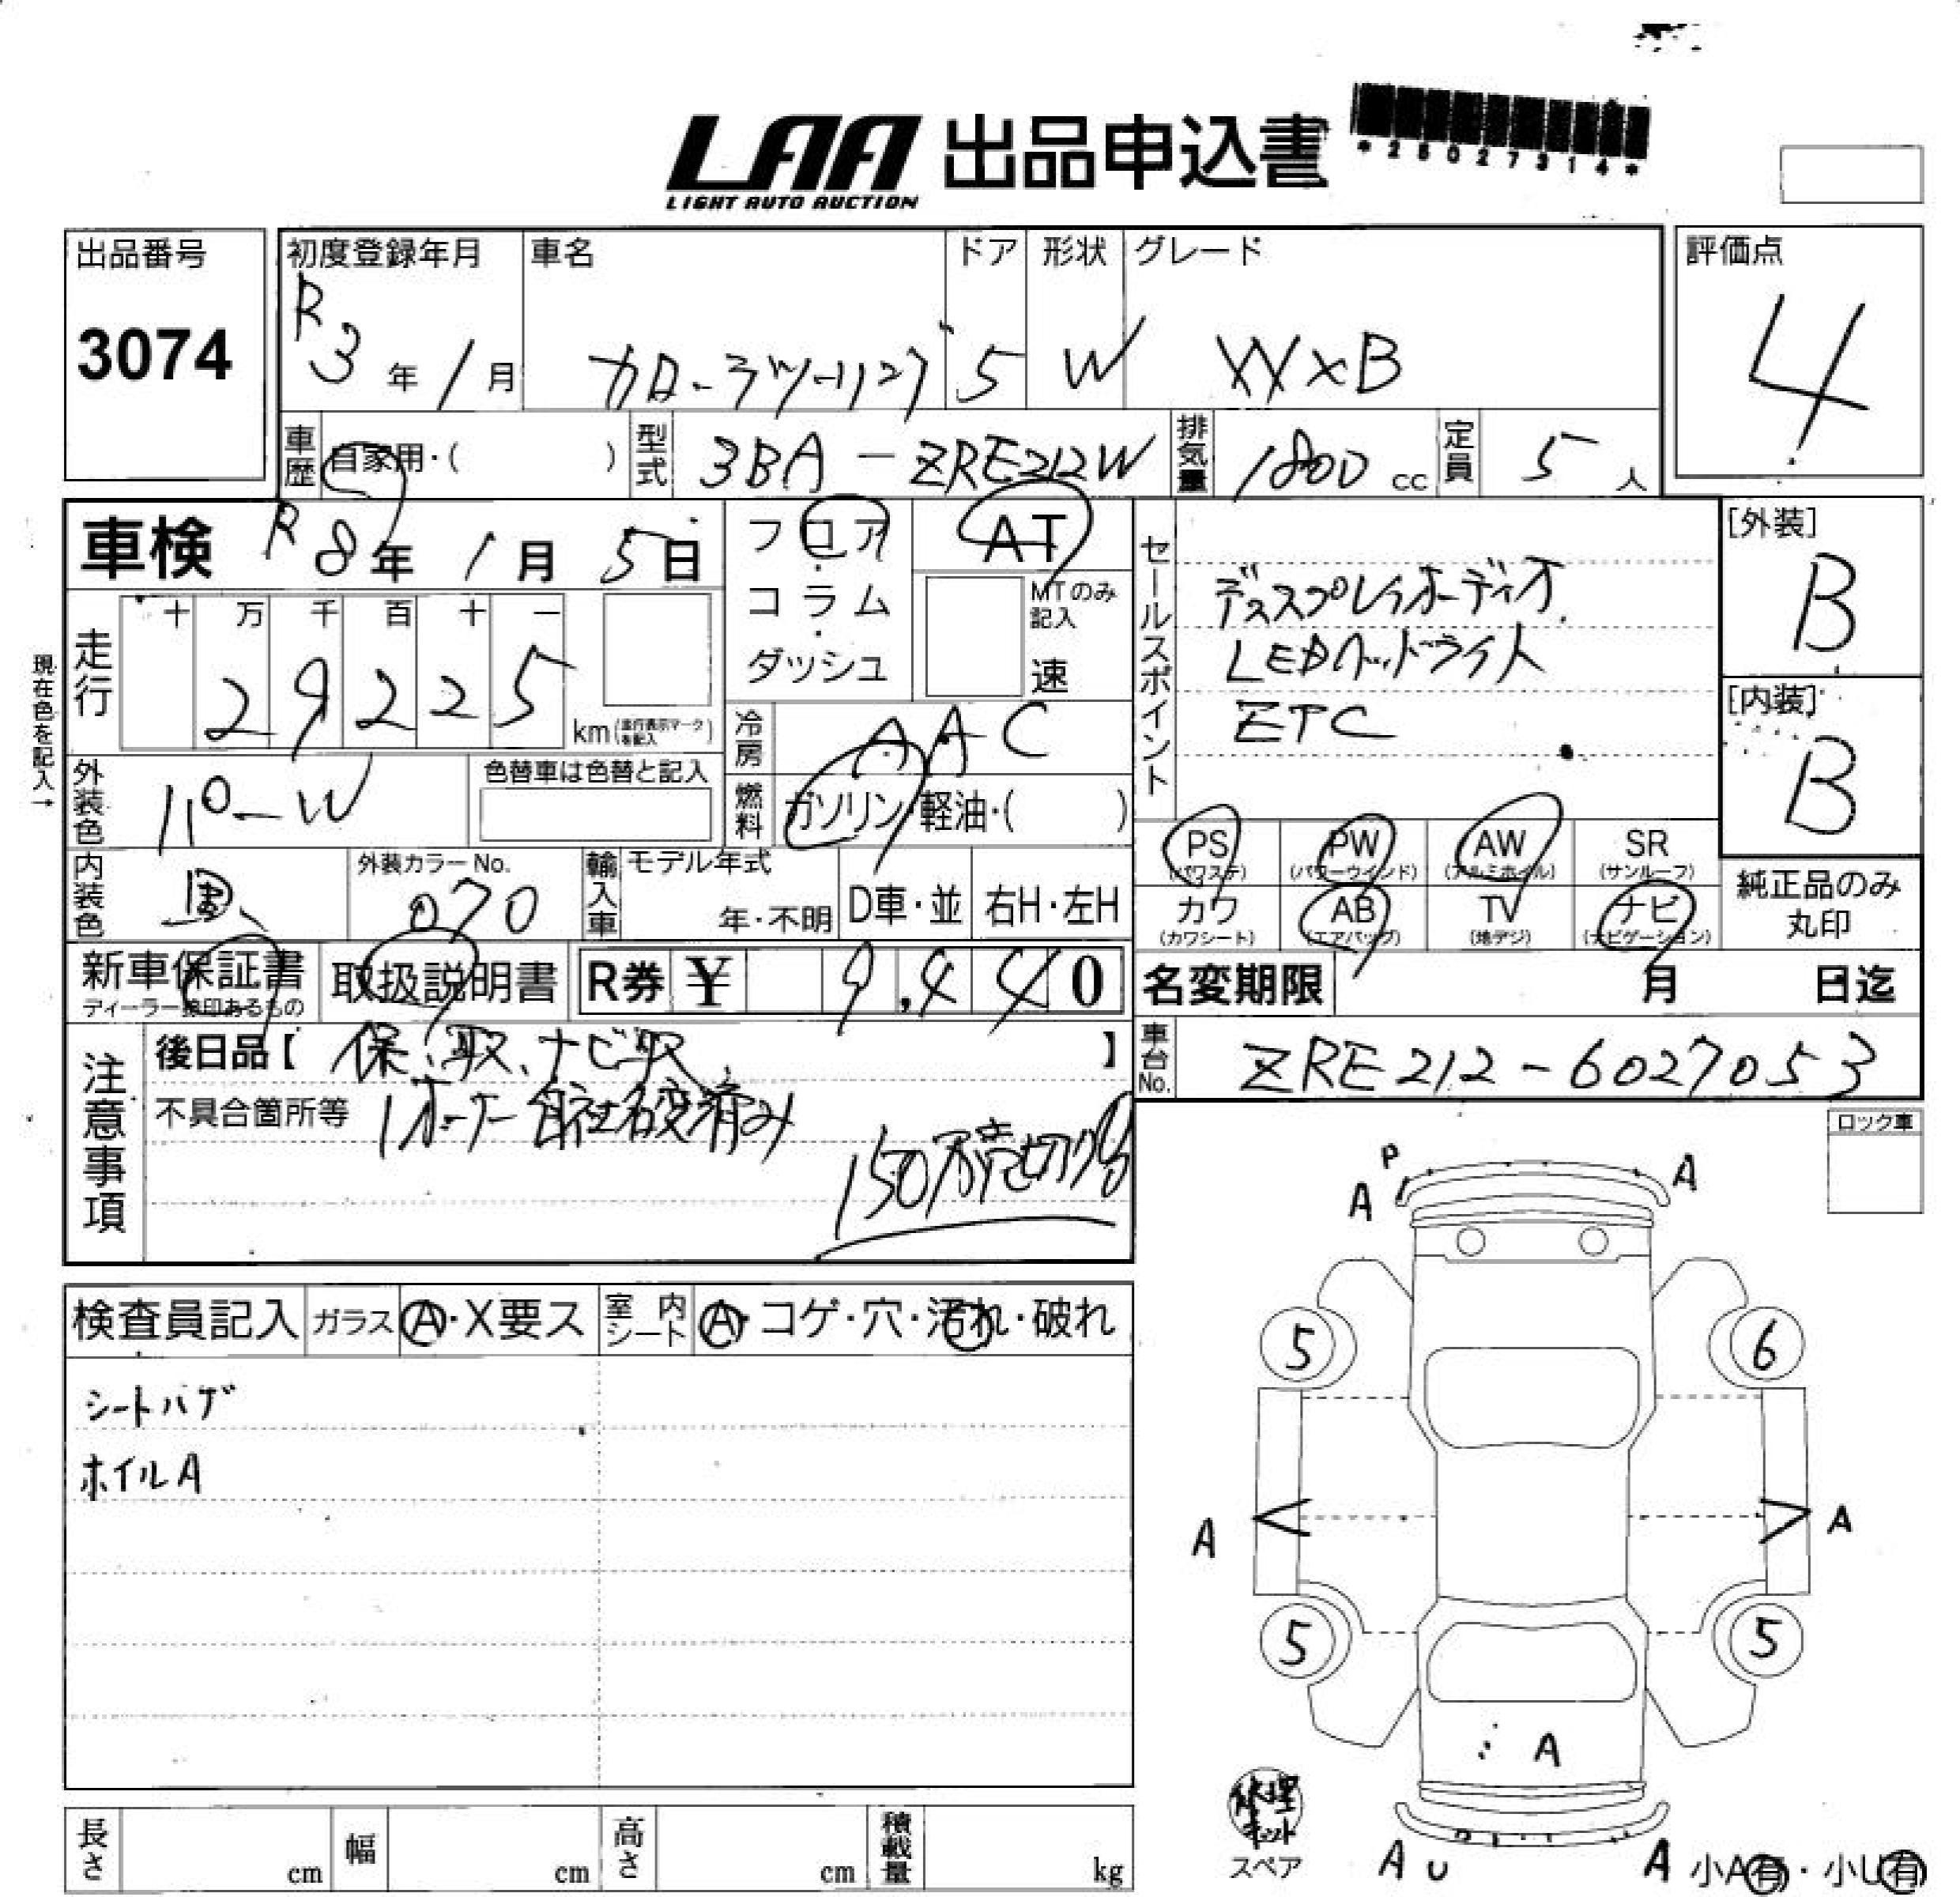 LAA 出品申込書
LIGHT AUTO AUCTION
*25027314*
出品番号 初度登録年月 車名 ドア 形状 グレード 評価点
3074 R3年 1月 カローラツーリング 5 W WxB 4
車歴 自家用・( ) 型式 3BA-ZRE212W 排気量 1800 cc 定員 5 人
車検 R8年 1月 5日 フロア AT
コラム MTのみ記入
ダッシュ 速
走行 十 万 千 百 十 一
29225 km(走行表示マークを記入)
現在色を記入→
冷房 AAC
外装色 パールW 色替車は色替と記入
燃料 ガソリン・軽油・( )
内装色 黒 外装カラーNo. 070
輸入車 モデル年式 年・不明 D車・並 右H・左H
セールスポイント
ディスプレイオーディオ
LEDヘッドライト
ETC
[外装]
B
[内装]
B
PS(パワステ) PW(パワーウインド) AW(アルミホイル) SR(サンルーフ)
カワ(カワシート) AB(エアバッグ) TV(地デジ) ナビ(ナビゲーション)
純正品のみ丸印
新車保証書 取扱説明書 R券 ¥ 9,440
ディーラー捺印あるもの
名変期限 月 日迄
車台No. ZRE212-6027053
注意事項
後日品【 保、取、ナビ取 】
不具合箇所等 1オーナー 自社名変済み
150万売切り
ロック車
検査員記入 ガラス A・X要ス 室内シート A・コゲ・穴・汚れ・破れ
シートハゲ
ホイルA
P
A A
5 6
A A
5 5
A
修理キット
スペア
A U A 小A有・小U有
長さ cm 幅 cm 高さ cm 積載量 kg